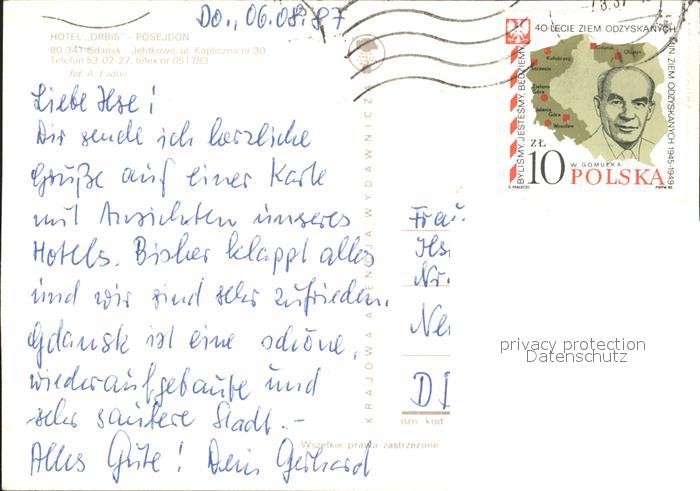 Do., 06.08.87
HOTEL „ORBIS" - POSEJDON
80-341 Gdańsk - Jelitkowo, ul. Kapliczna nr 30
Telefon 53-02-27, telex nr 051783
fot. A. Ładno
Liebe Ilse!
Dir sende ich herzliche
Grüße auf einer Karte
mit Ansichten unseres
Hotels. Bisher klappt alles
und wir sind sehr zufrieden.
Gdansk ist eine schöne,
wiederaufgebaute und
sehr saubere Stadt. -
Alles Gute! Dein Gerhard
KRAJOWA AGENCJA WYDAWNICZA
Wszelkie prawa zastrzeżone
Frau
Ilse
Nr.
Ne
D
ozn kod
40-LECIE ZIEM ODZYSKANYCH
MIN. ZIEM ODZYSKANYCH 1945-1949
BYLIŚMY, JESTEŚMY, BĘDZIEMY
Kołobrzeg
Gdańsk
Olsztyn
Szczecin
Zielona Góra
Jelenia Góra
Wrocław
ZŁ
10
W. GOMUŁKA
POLSKA
S. MAŁECKI
PWPW 85
privacy protection
Datenschutz